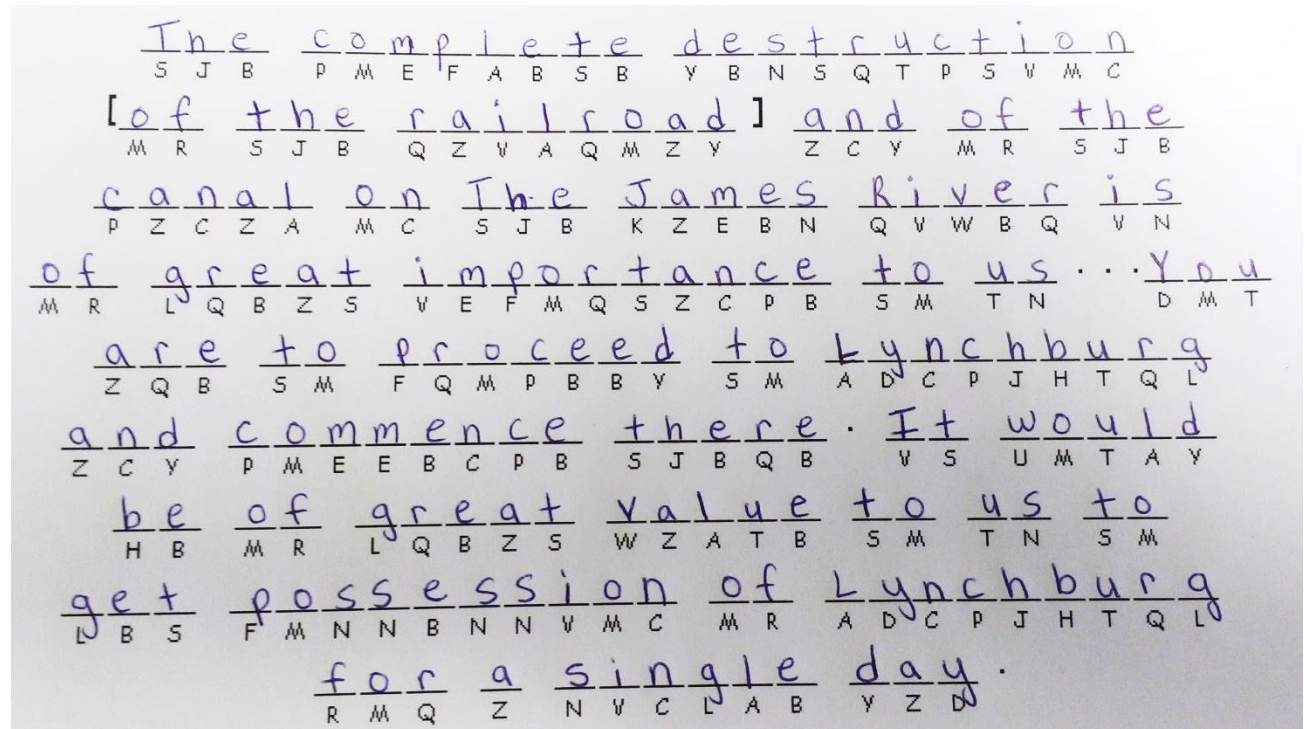 The complete destruction
S J B P M E F A B S B Y B N S Q T P S V M C
[of the railroad] and of the
M R S J B Q Z V A Q M Z Y Z C Y M R S J B
canal on The James River is
P Z C Z A M C S J B K Z E B N Q V W B Q V N
of great importance to us ... You
M R L Q B Z S V E F M Q S Z C P B S M T N D M T
are to proceed to Lynchburg
Z Q B S M F Q M P B B Y S M A D C P J H T Q L
and commence there. It would
Z C Y P M E E B C P B S J B Q B V S U M T A Y
be of great value to us to
H B M R L Q B Z S W Z A T B S M T N S M
get possession of Lynchburg
L B S F M N N B N N V M C M R A D C P J H T Q L
for a single day.
R M Q Z N V C L A B Y Z D